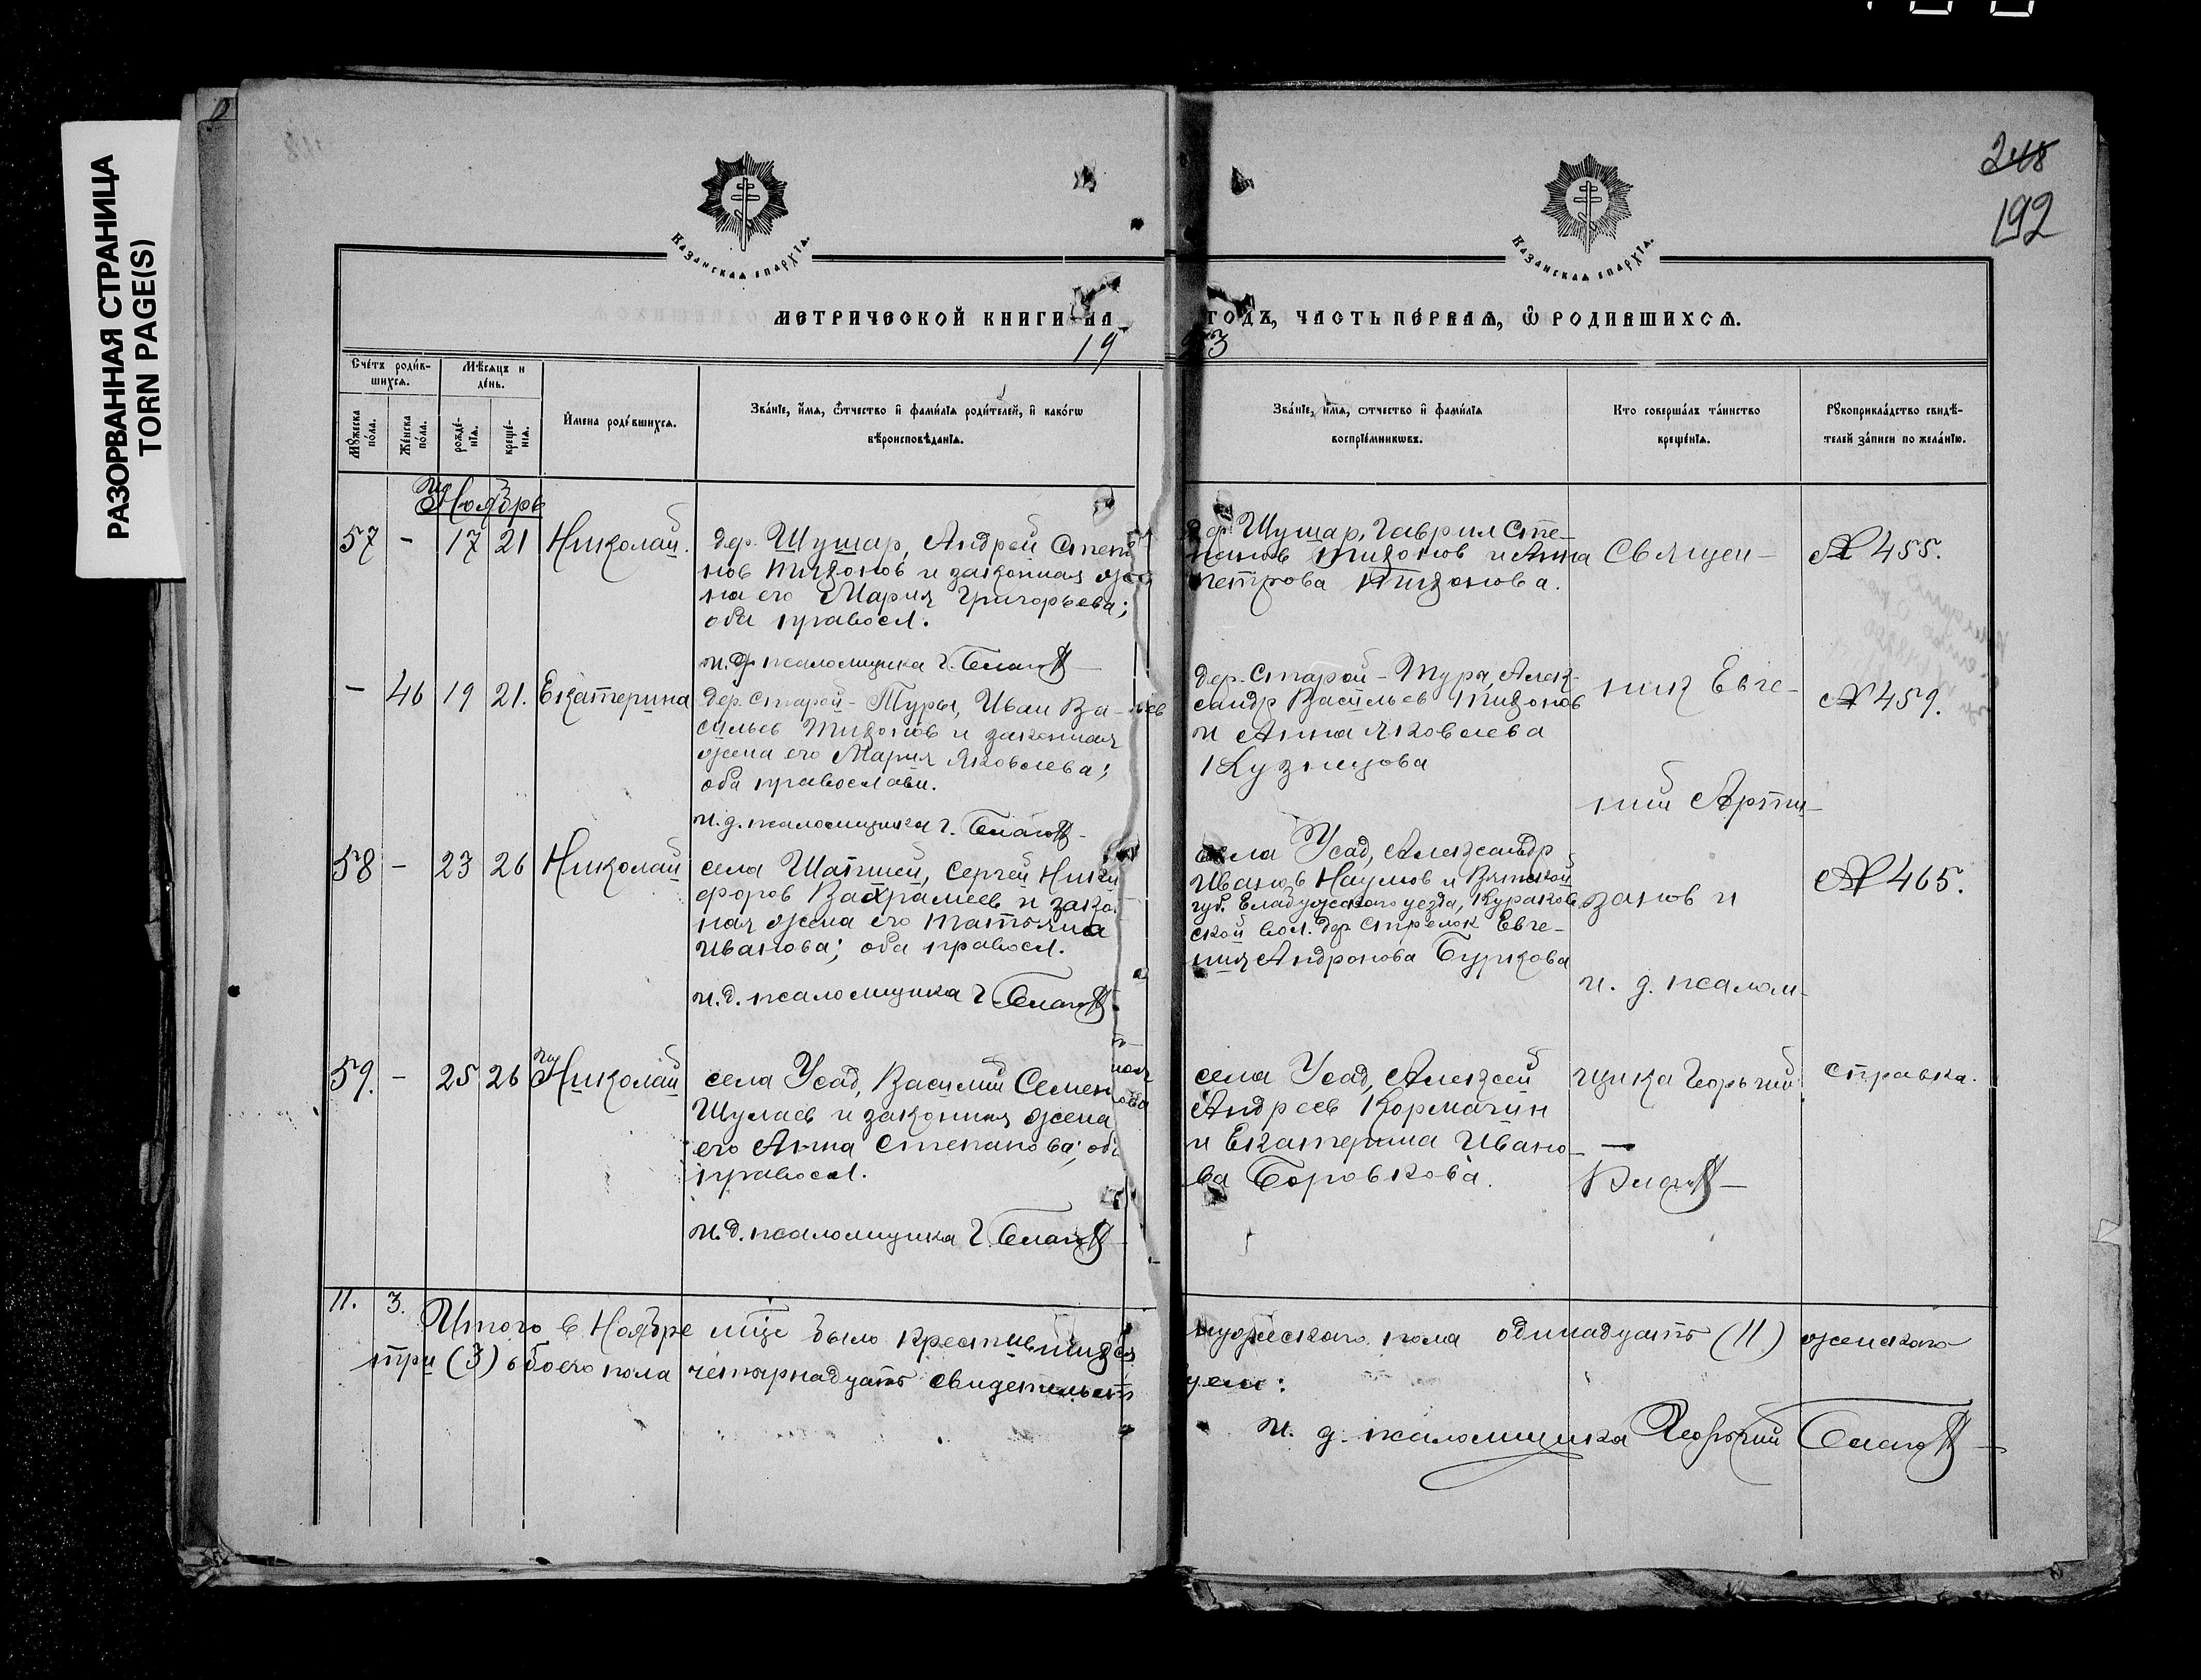 РАЗОРВАННАЯ СТРАНИЦА
TORN PAGE(S)
248
192
Казанская епархїя.
Казанская епархїя.
МЕТРИЧЕСКОЙ КНИГИ НА
ГОДЪ, ЧАСТЬ ПЕРВАЯ, Ѽ РОДИВШИХСѦ.
19
23
Счетъ родив-
шихся.
Мѣсяцъ и
день.
Мужеска
пола.
Женска
пола.
рожде-
нїя.
креще-
нїя.
Имена родившихся.
Званїе, имя, ѿтчество и фамилїя родителей, и какогѡ
вѣроисповѣданїя.
Званїе, имя, ѿтчество и фамилїя
воспрїемникѡвъ.
Кто совершалъ таинство
крещенїя.
Рукоприкладство свидѣ-
телей записи по желанїю.
Ноябрь
57 - 17 21 Николай.
дер. Шушар, Андрей Степа
нов Тихонов и законная же
на его Мария Григорьева;
оба правосл.
и.д. псаломщика Г. Благов
дер. Шушар, Гаврил Сте-
панов Тихонов и Анна
Петрова Тихонова.
Священ-
№ 455.
- 46 19 21. Екатерина
дер. Старой-Туры, Иван Ва-
сильев Тихонов и законная
жена его Мария Яковлева;
оба православн.
и.д. псаломщика Г. Благов
дер. Старой-Туры, Алек-
сандр Васильев Тихонов
и Анна Яковлева
Кузнецова
ник Евге-
ний Арта-
№ 459.
58 - 23 26 Николай
села Шапшей, Сергей Ники
форов Вахрамеев и зако
ная жена его Татьяна
Иванова; оба правосл.
и.д. псаломщика Г. Благов
села Усад, Александр
Иванов Наумов и Вятской
губ. Елабужского уезда, Кураков
ской вол. дер. Стрелок Евге-
ния Андронова Буркова
занов и
и. д. псалом-
№ 465.
59. - 25 26 Николай
села Усад, Василий Семен
Шулаев и законная жена
его Анна Степанова; об
правосл.
и.д. псаломщика Г. Благов
села Усад, Алексей
Андреев Кормачин
и Екатерина Ивано-
ва Боровкова.
щика Георгий
Благов
справка.
11. 3.
Итого в Ноябре м-це было крестившихся
мужеского пола одинадцать (11) женского
три (3) обоего пола четырнадцать свидетельст
уем:
и. д. псаломщика Георгий Благов